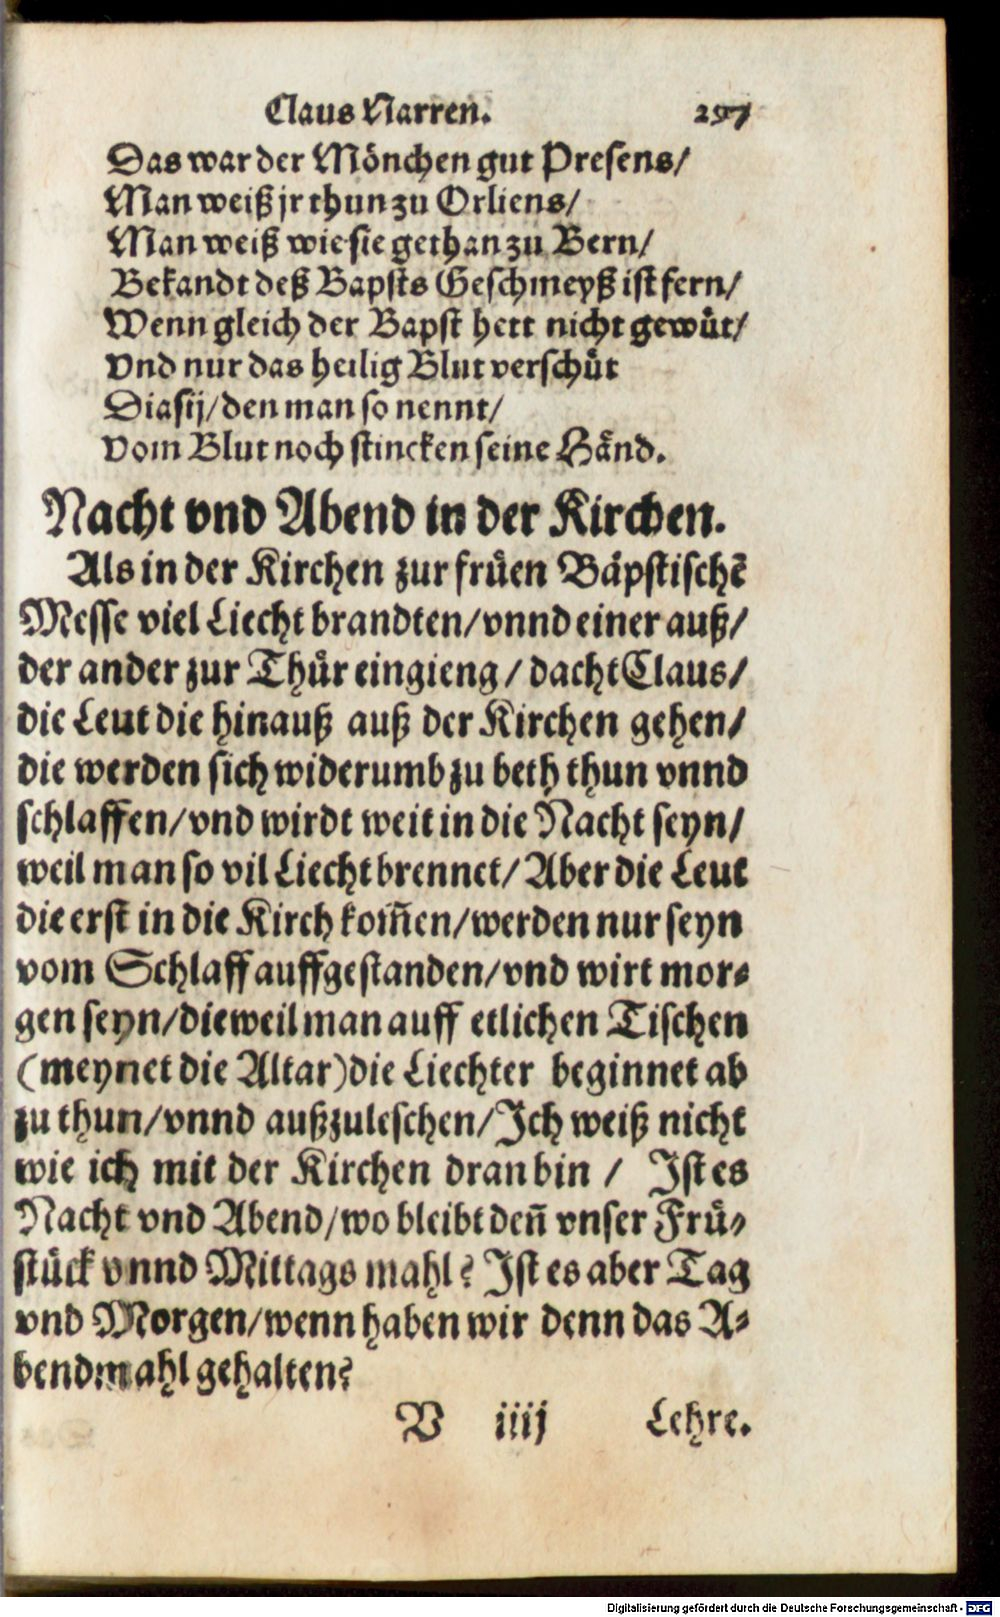 Claus Narren. 297
Das war der Mönchen gut Presens/
Man weiß jr thun zu Orliens/
Man weiß wie sie gethan zu Bern/
Bekandt deß Bapsts Geschmeyß ist fern/
Wenn gleich der Bapst hett nicht gewüt/
Vnd nur das heilig Blut verschüt
Diasij/den man so nennt/
Vom Blut noch stincken seine Händ.
Nacht vnd Abend in der Kirchen.
Als in der Kirchen zur früen Bäpstischē
Messe viel Liecht brandten/vnnd einer auß/
der ander zur Thür eingieng/dacht Claus/
die Leut die hinauß auß der Kirchen gehen/
die werden sich widerumb zu beth thun vnnd
schlaffen/vnd wirdt weit in die Nacht seyn/
weil man so vil Liecht brennet/Aber die Leut
die erst in die Kirch kom̄en/werden nur seyn
vom Schlaff auffgestanden/vnd wirt mor-
gen seyn/dieweil man auff etlichen Tischen
(meynet die Altar)die Liechter beginnet ab
zu thun/vnnd außzuleschen/Ich weiß nicht
wie ich mit der Kirchen dran bin / Ist es
Nacht vnd Abend/wo bleibt den̄ vnser Frü-
stück vnnd Mittags mahl? Ist es aber Tag
vnd Morgen/wenn haben wir denn das A-
bendmahl gehalten?
V iiij Lehre.
Digitalisierung gefördert durch die Deutsche Forschungsgemeinschaft - DFG